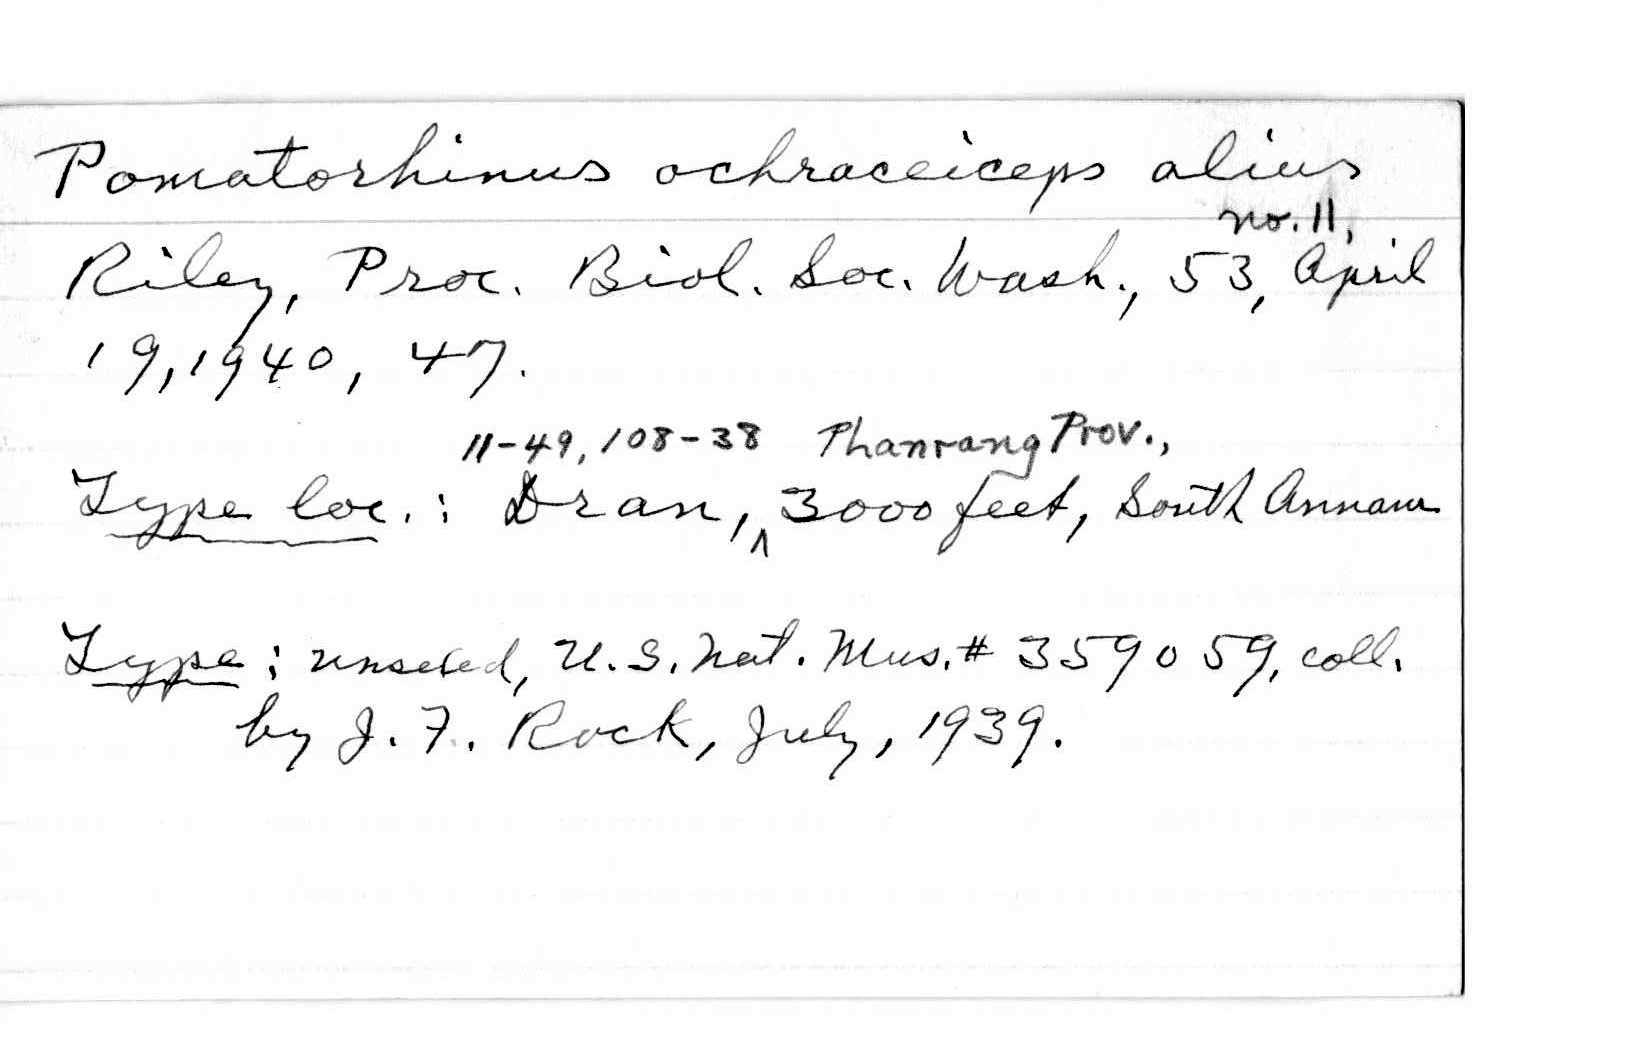 Pomatorhinus ochraceiceps alius
no. 11,
Riley, Proc. Biol. Soc. Wash., 53, April
19, 1940, 47.
11-49, 108-38 Phanrang Prov.,
Type loc. : Dran, ^ 3000 feet, South Annam
Type : unsexed, U.S. Nat. Mus. # 359059, coll.
by J. F. Rock, July, 1939.